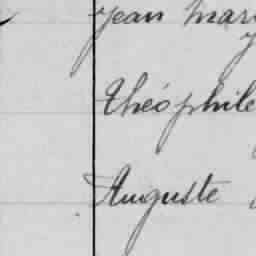 Jean Mari
Théophile
Auguste